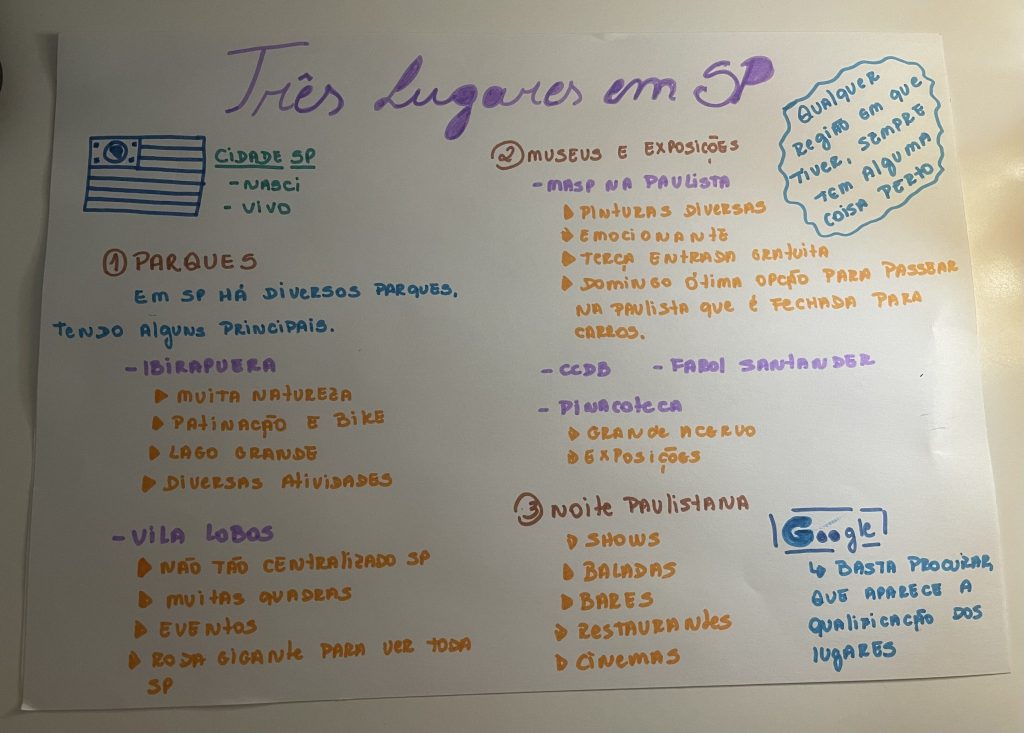 Três Lugares em SP
CIDADE SP
- NASCI
- VIVO
① PARQUES
EM SP HÁ DIVERSOS PARQUES,
TENDO ALGUNS PRINCIPAIS.
- IBIRAPUERA
▶ MUITA NATUREZA
▶ PATINAÇÃO E BIKE
▶ LAGO GRANDE
▶ DIVERSAS ATIVIDADES
- VILA LOBOS
▶ NÃO TÃO CENTRALIZADO SP
▶ MUITAS QUADRAS
▶ EVENTOS
▶ RODA GIGANTE PARA VER TODA
SP
② MUSEUS E EXPOSIÇÕES
- MASP NA PAULISTA
▶ PINTURAS DIVERSAS
▶ EMOCIONANTE
▶ TERÇA ENTRADA GRATUITA
▶ DOMINGO ÓTIMA OPÇÃO PARA PASSEAR
NA PAULISTA QUE É FECHADA PARA
CARROS.
- CCDB - FAROL SANTANDER
- PINACOTECA
▶ GRANDE ACERVO
▶ EXPOSIÇÕES
③ NOITE PAULISTANA
▶ SHOWS
▶ BALADAS
▶ BARES
▶ RESTAURANTES
▶ CINEMAS
QUALQUER
REGIÃO EM QUE
TIVER, SEMPRE
TEM ALGUMA
COISA PERTO
Google
↳ BASTA PROCURAR,
QUE APARECE A
QUALIFICAÇÃO DOS
LUGARES